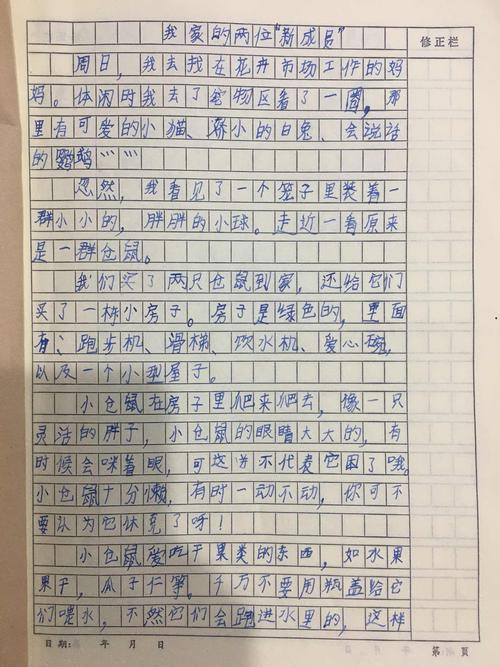 我家的两位“新成员”
修正栏
周日，我去找在花卉市场工作的妈
妈。休闲时我去了宠物区看了一圈，那
里有可爱的小猫、娇小的白兔、会说话
的鹦鹉……
忽然，我看见了一个笼子里装着一
群小小的，胖胖的小球。走近一看原来
是一群仓鼠。
我们买了两只仓鼠到家，还给它们
买了一栋小房子。房子是绿色的，里面
有：跑步机、滑梯、饮水机、爱心碗，
以及一个小型屋子。
小仓鼠在房子里爬来爬去，像一只
灵活的胖子，小仓鼠的眼睛大大的，有
时候会咪着眼，可这并不代表它困了哦。
小仓鼠十分懒，有时一动不动，你可不
要认为它休克了呀！
小仓鼠爱吃干果类的东西，如水果
果干，瓜子仁等。千万不要用瓶盖给它
们喂水，不然它们会跑进水里的，这样
日期： 年 月 日 第 页